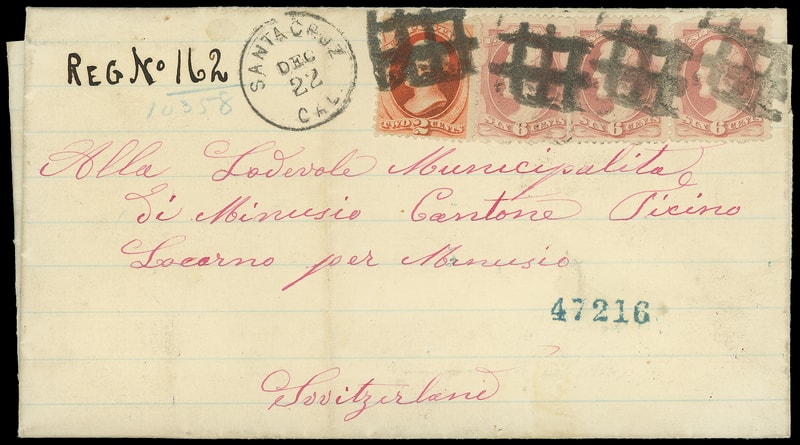 REG No 162
10358
SANTA CRUZ
DEC
22
CAL.
TWO 2 CENTS
SIX 6 CENTS
SIX 6 CENTS
SIX 6 CENTS
Alla Lodevole Municipalita
di Minusio Cantone Ticino
Locarno per Minusio
47216
Sovitzerland